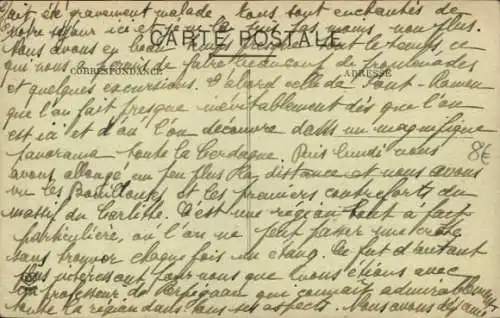 était gravement malade. Tous sont enchantés de
notre séjour ici et nous non plus.
CARTE POSTALE
Nous avons eu beau temps tout le temps, ce
qui nous a permis de faire beaucoup de promenades
CORRESPONDANCE
ADRESSE
et quelques excursions. D'abord celle de Font-Romeu
que l'on fait presque inévitablement dès que l'on
est ici et d'où l'on découvre dans un magnifique
panorama toute la Cerdagne. Puis lundi nous
8€
avons allongé un peu plus la distance et nous avons
vu les Bouillouses et les premiers contreforts du
massif du Carlitte. C'est une région tout à fait
particulière, où l'on ne peut passer une crête
sans trouver chaque fois un étang. Ce fut d'autant
plus intéressant pour nous que nous étions avec
un professeur de Perpignan qui connaît admirablement
toute la région dans tous ses aspects. Nous avons déjà